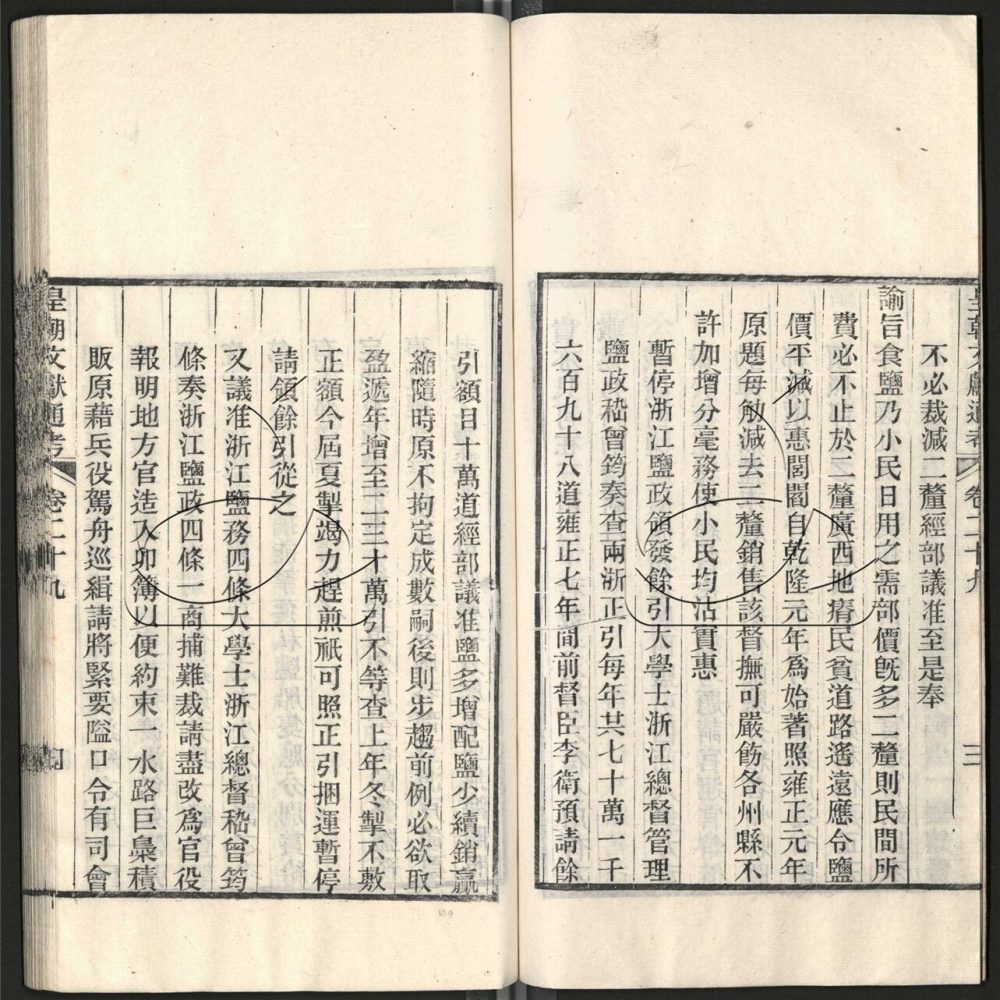 皇朝文獻通考 卷二十九 三
不必裁減二釐經部議准至是奉
諭旨食鹽乃小民日用之需部價旣多二釐則民間所
費必不止於二釐廣西地瘠民貧道路遙遠應令鹽
價平減以惠閭閻自乾隆元年爲始著照雍正元年
原題每觔減去二釐銷售該督撫可嚴飭各州縣不
許加增分毫務使小民均沾實惠
暫停浙江鹽政領發餘引大學士浙江總督管理
鹽政嵇曾筠奏查兩浙正引每年共七十萬一千
六百九十八道雍正七年間前督臣李衛預請餘
引額目十萬道經部議准鹽多增配鹽少續銷贏
縮隨時原不拘定成數嗣後則步趨前例必欲取
盈遞年增至二三十萬引不等查上年冬掣不敷
正額今屆夏掣竭力趕煎祇可照正引捆運暫停
請領餘引從之
又議准浙江鹽務四條大學士浙江總督嵇曾筠
條奏浙江鹽政四條一商捕難裁請盡改爲官役
報明地方官造入卯簿以便約束一水路巨梟積
販原藉兵役駕舟巡緝請將緊要隘口令有司會
皇朝文獻通考 卷二十九